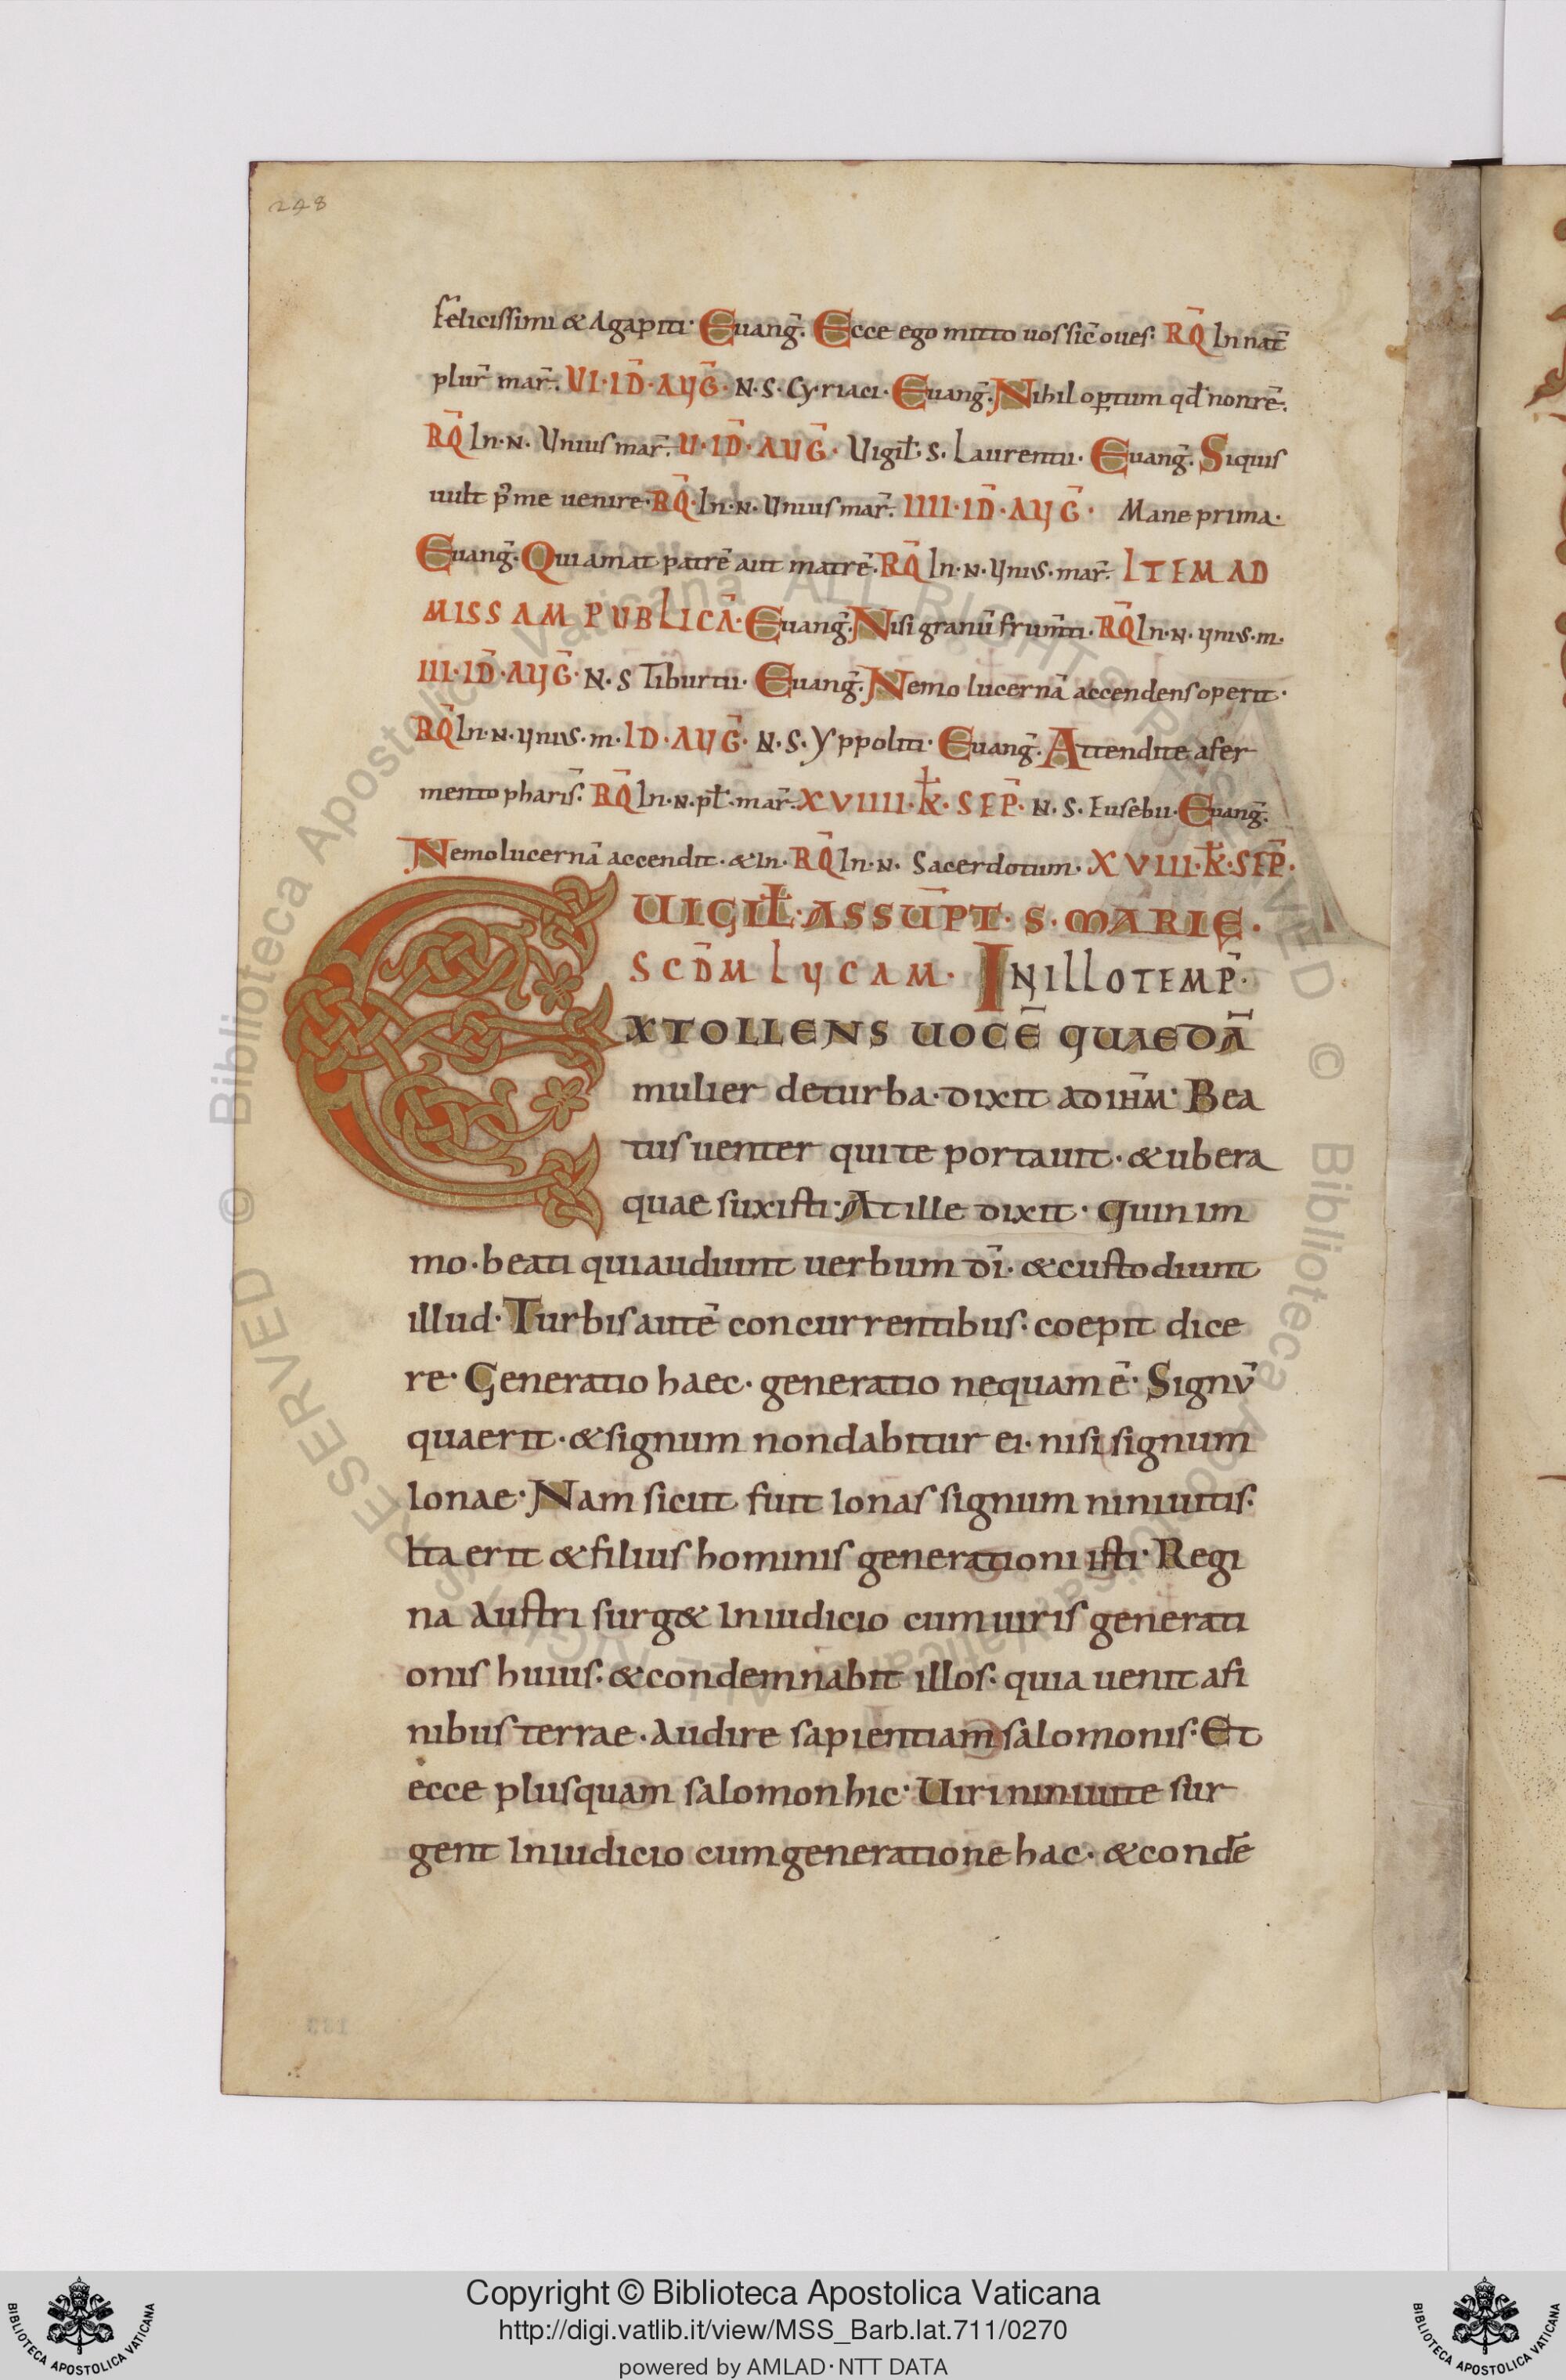 248
felicissimi & Agapiti· Euang̅. Ecce ego mitto uos sic̅ oues· RQ̅ In nat̅
plur̅ mar̅. VI·ID̅·AUG̅· N·S·Cyriaci· Euang̅· Nihil op̲tum qd̅ non re̅.
RQ̅ In·N· Unius mar̅. U·ID̅·AUG̅· Uigil̅·S·Laurentii· Euang̅. Siquis
uult p̄ me uenire· RQ̅·In·N·Unius mar̅. IIII·ID̅·AUG̅· Mane prima·
Euang̅· Qui amat patre̅ aut matre̅· RQ̅ In·N·Unius·mar̅. ITEM AD
MISSAM PUBLICA̅· Euang̅· Nisi granu̅ frum̅ti· RQ̅ In·N·unius·m·
III·ID̅·AUG̅· N·S Tiburtii· Euang̅· Nemo lucerna̅ accendens operit·
RQ̅ In·N·unius·m· ID·AUG̅· N·S·Yppoliti· Euang̅· Attendite a fer
mento pharis̅. RQ̅ In·N·pl̅·mar̅. XVIIII·K̅·SEP̅· N·S·Eusebii· Euang̅.
Nemo lucerna̅ accendit·&in· RQ̅ In·N· Sacerdotum· XVIII·K̅·SEP̅·
UIGIL̅·ASSUM̅PT·S·MARIE·
SCD̅M LUCAM· IN ILLO TEMP̅·
EXTOLLENS UOCE̅ QUAEDA̅
mulier deturba· dixit ad ih̅m· Bea
tus uenter qui te portauit· & ubera
quae suxisti· At ille dixit· Quin im
mo· beati qui audiunt uerbum di̅· & custodiunt
illud· Turbis aute̅ concurrentibus· coepit dice
re· Generatio haec· generatio nequam e̅· Signu̅
quaerit· & signum non dabitur ei· nisi signum
Ionae· Nam sicut fuit Ionas signum niniuitis·
Ita erit & filius hominis generationi isti· Regi
na Austri surg& In iudicio cum uiris generati
onis huius· & condemnabit illos· quia uenit a fi
nibus terrae· Audire sapientiam salomonis· Et
ecce plus quam salomon hic· Uiri niniuite sur
gent In iudicio cum generatione hac· & conde̅
133
© Biblioteca Apostolica Vaticana ALL RIGHTS RESERVED
© Biblioteca Apostolica Vaticana ALL RIGHTS RESERVED
Copyright © Biblioteca Apostolica Vaticana
http://digi.vatlib.it/view/MSS_Barb.lat.711/0270
powered by AMLAD·NTT DATA
BIBLIOTECA APOSTOLICA VATICANA
BIBLIOTECA APOSTOLICA VATICANA